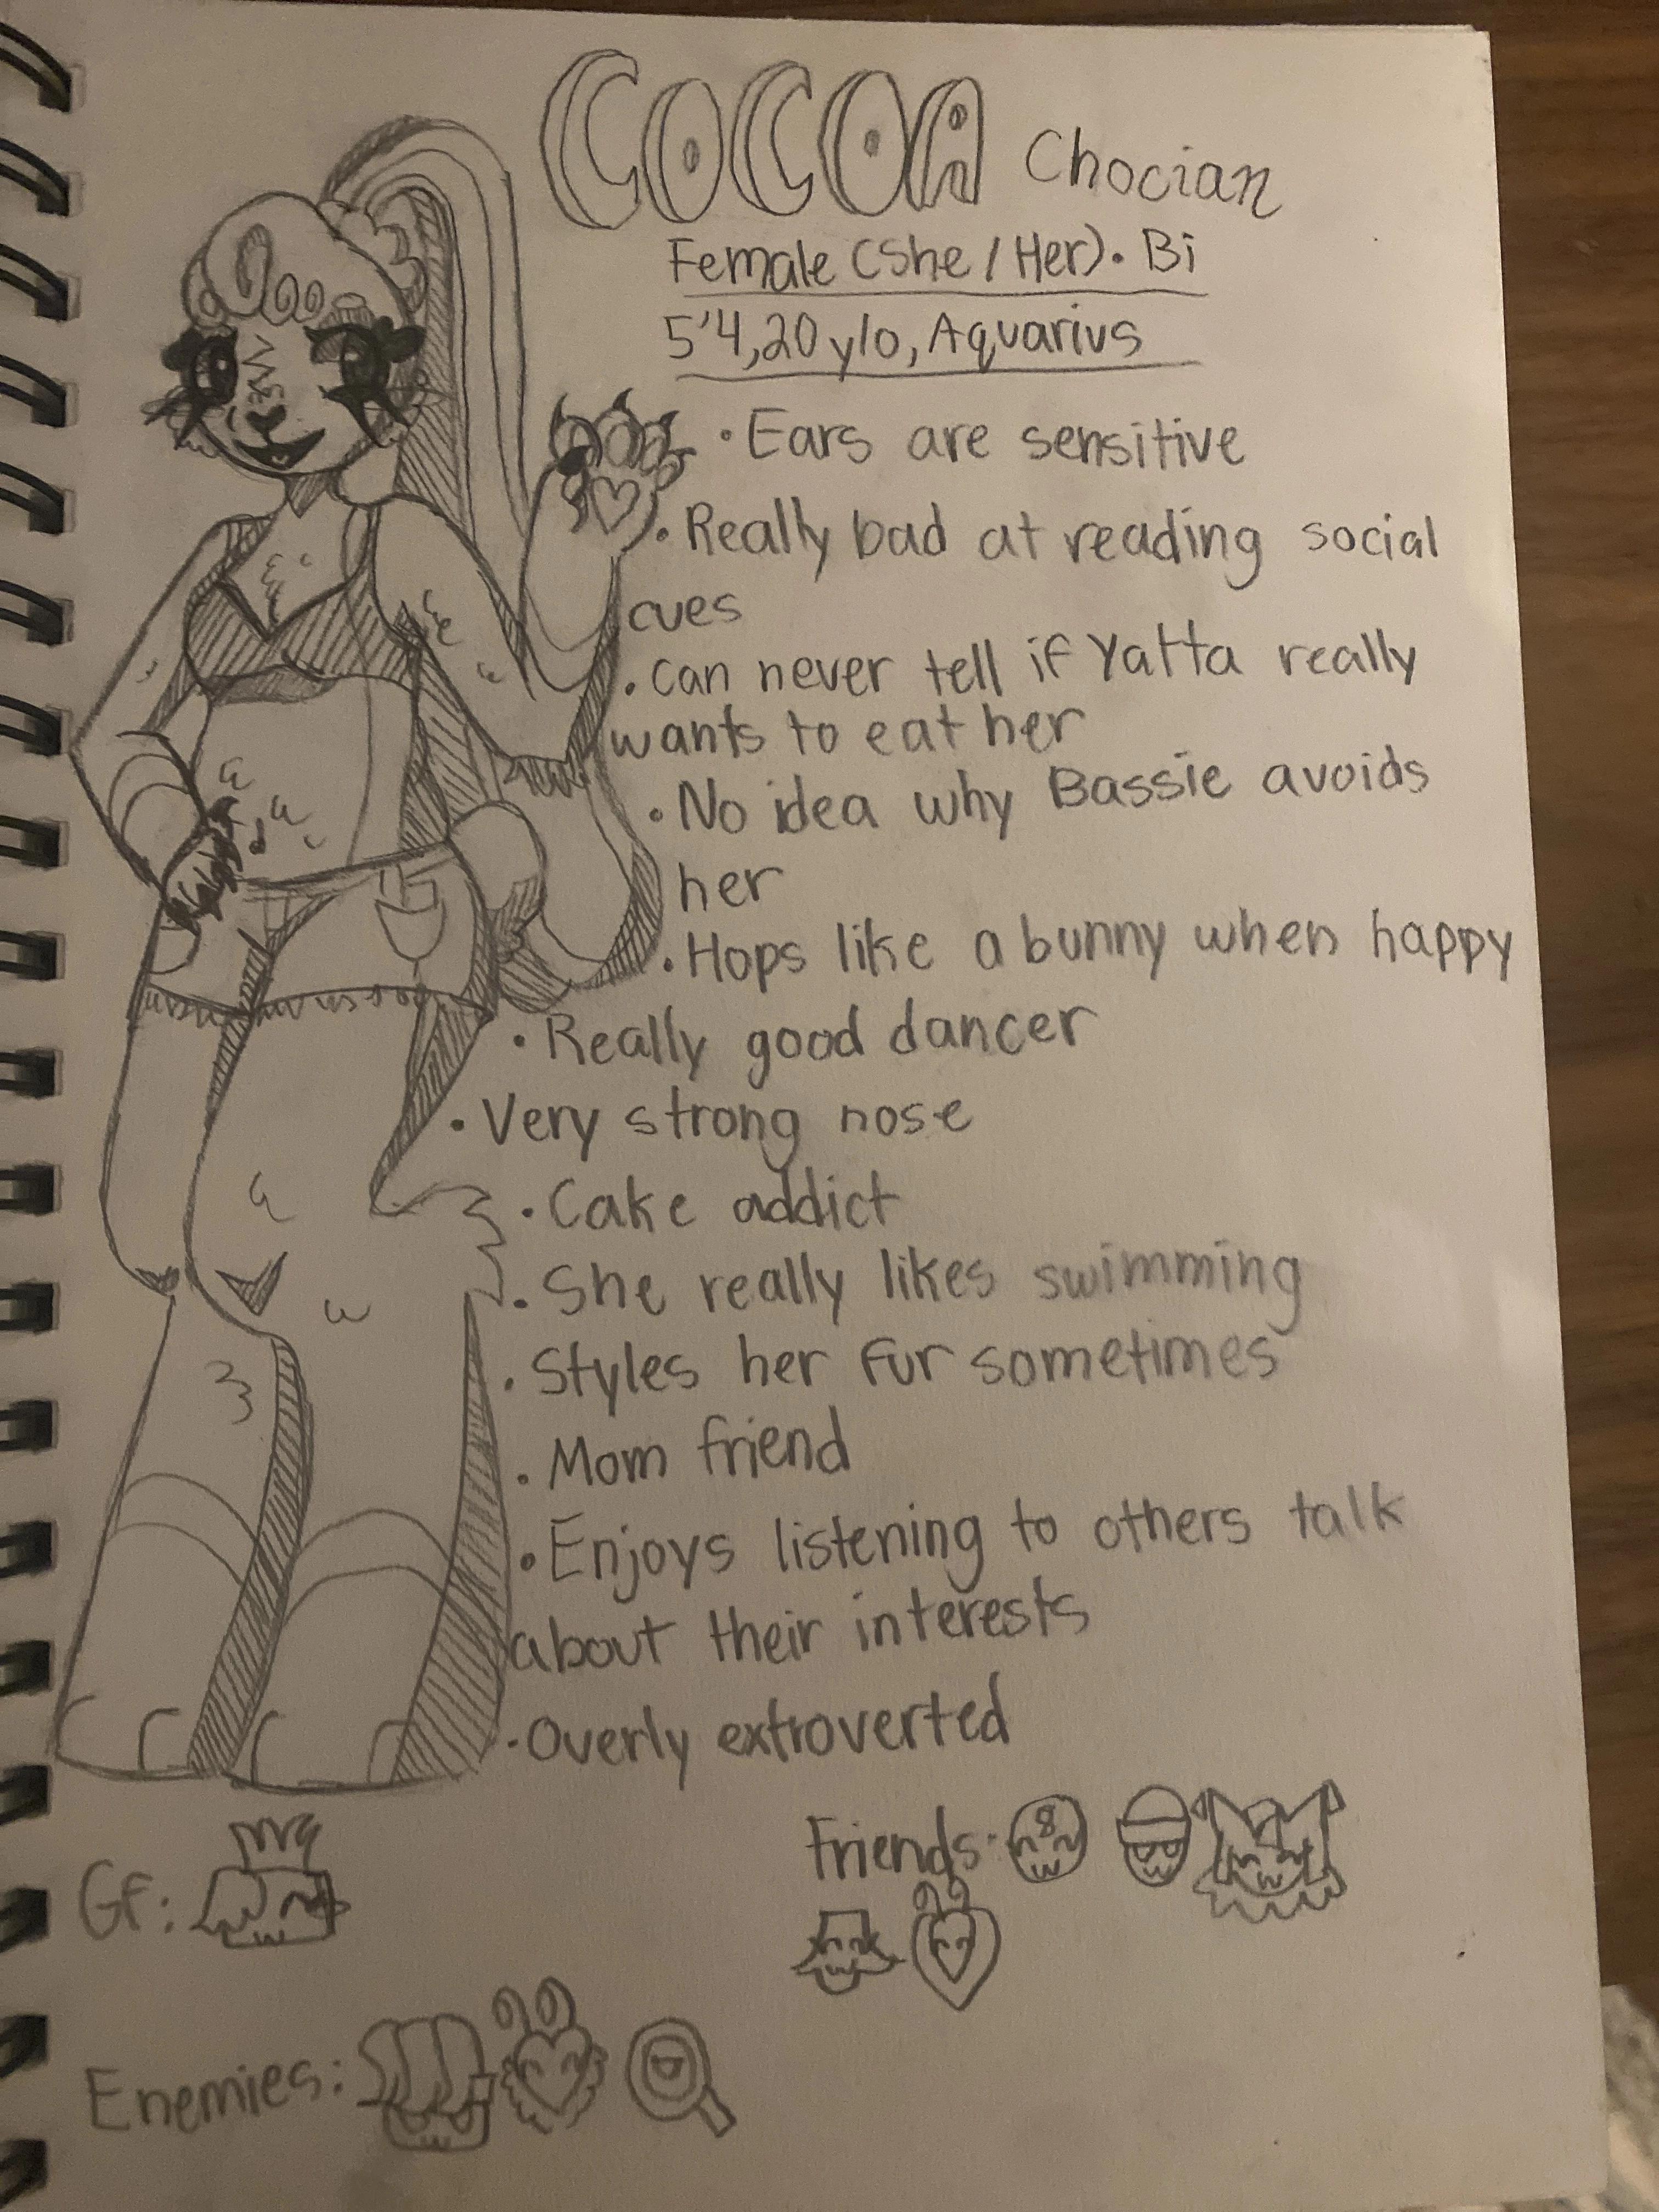 COCOA Chocian
Female (She/Her). Bi
5'4,20 y/o, Aquarius
• Ears are sensitive
• Really bad at reading social
cues
• can never tell if Yatta really
wants to eat her
• No idea why Bassie avoids
her
• Hops like a bunny when happy
• Really good dancer
• Very strong nose
• Cake addict
• She really likes swimming
• Styles her fur sometimes
• Mom friend
• Enjoys listening to others talk
about their interests
• Overly extroverted
Friends:
8
Gf:
Enemies: